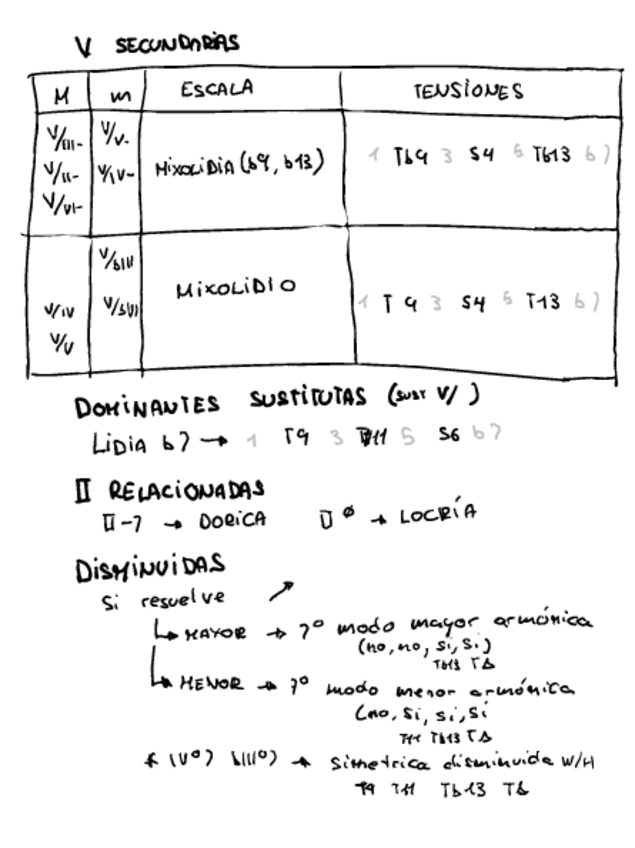 V SECUNDARIAS
M m ESCALA TENSIONES
V/III- V/V- MIXOLIDIA (b9, b13) 1 Tb9 3 S4 5 Tb13 b7
V/II- V/IV-
V/VI-
V/bIII MIXOLIDIO 1 T9 3 S4 5 T13 b7
V/IV V/bVI
V/V
DOMINANTES SUSTITUTAS (SUST V/ )
LIDIA b7 → 1 T9 3 T#11 5 S6 b7
II RELACIONADAS
II-7 → DORICA II ø → LOCRÍA
DISMINUIDAS
Si resuelve ↗
↳ MAYOR → 7º modo mayor armónica
(no, no, si, si)
Tb13 TΔ
↳ MENOR → 7º modo menor armónica
(no, si, si, si
T11 Tb13 TΔ
* (Vº) bIIIº) → Simetrica disminuida W/H
T9 T11 Tb13 TΔ